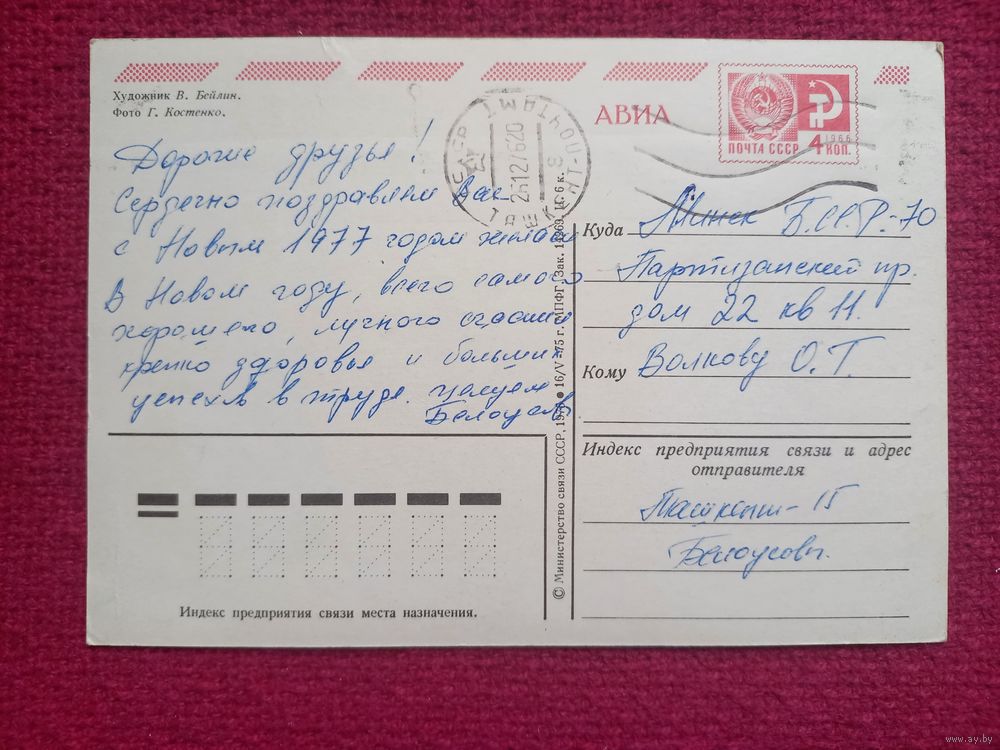 Художник В. Бейлин.
Фото Г. Костенко.
АВИА
ПОЧТА СССР
1966
4 КОП.
26127620
Дорогие друзья!
Сердечно поздравляем Вас
с Новым 1977 годом желаем
В Новом году, всего самого
хорошего, личного счастья
крепко здоровья и больших
успехов в труде. Целуем
Белоусовы
Куда Минск Б.С.С.Р.-70
Партизанский пр.
дом 22 кв 11.
Кому Волкову О.Т.
Индекс предприятия связи и адрес
отправителя
Ташкент-15
Белоусовы.
Индекс предприятия связи места назначения.
© Министерство связи СССР, 16/V-75 г. МПФГ. Зак. Ц. 6 к.
www.ay.by